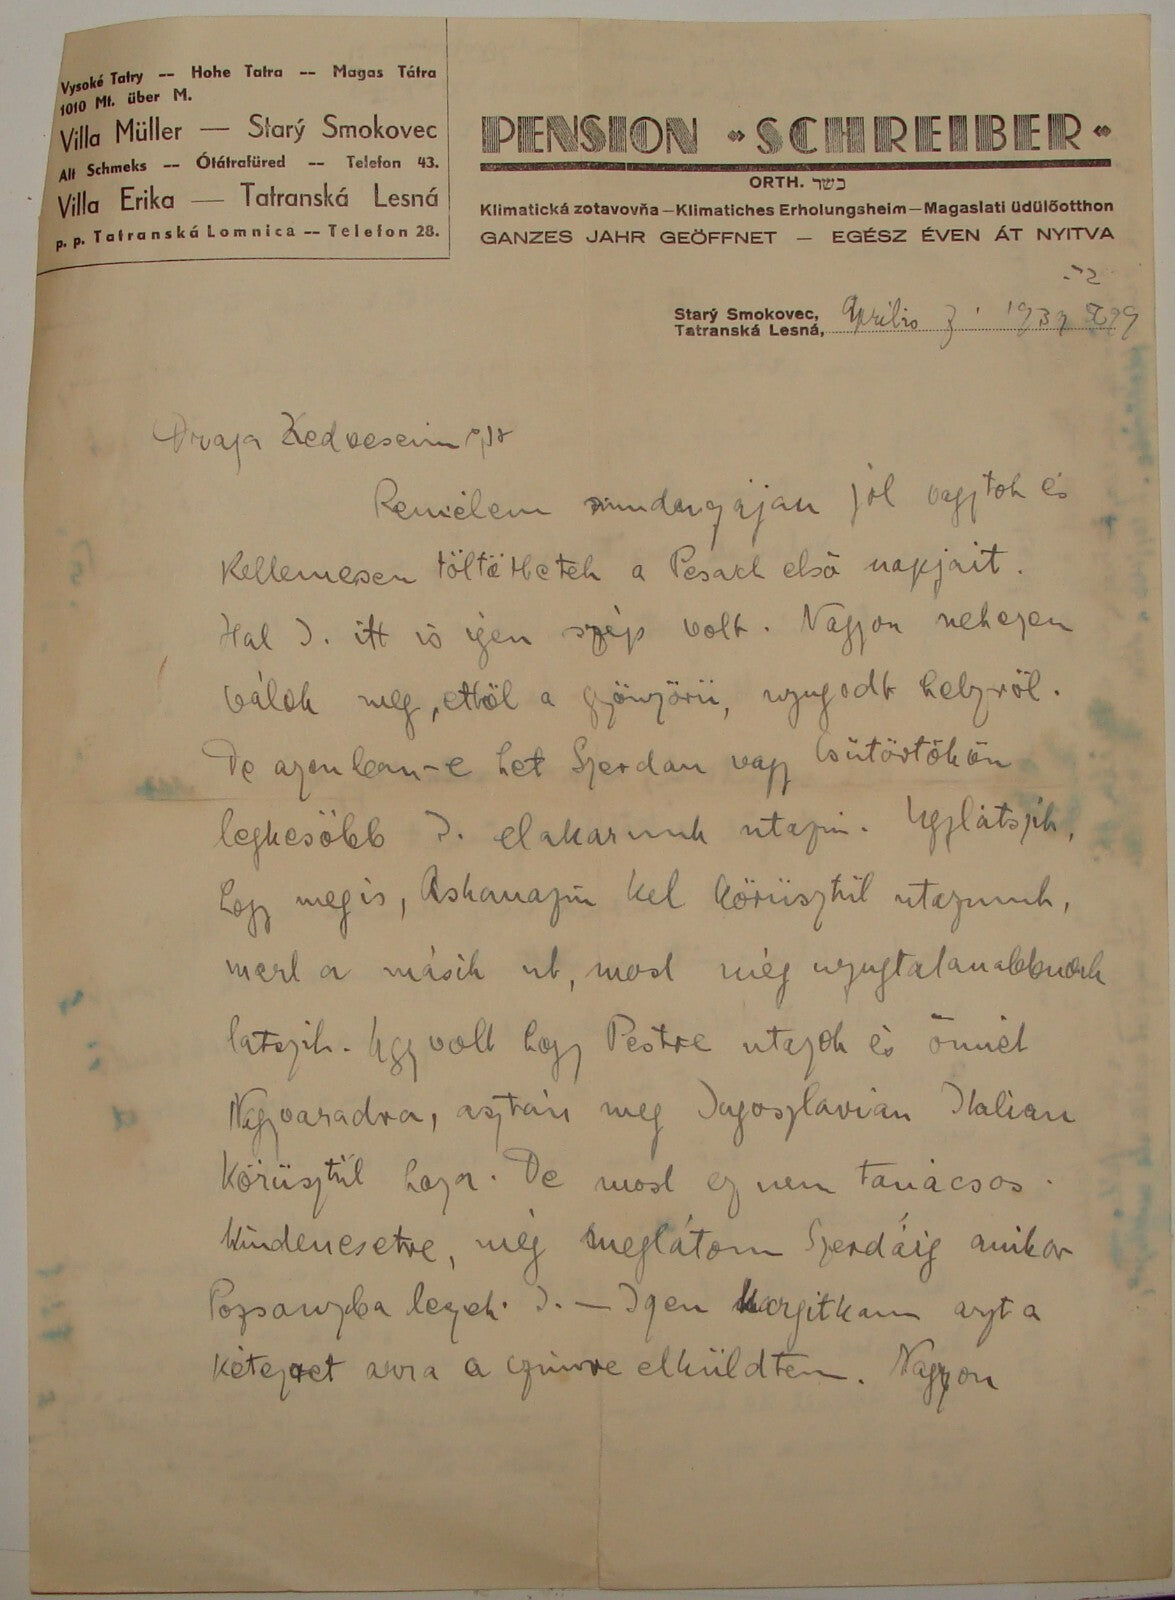 Vysoké Tatry -- Hohe Tatra -- Magas Tátra
1010 Mt. über M.
Villa Müller — Starý Smokovec
Alt Schmeks -- Ótátrafüred -- Telefon 43.
Villa Erika — Tatranská Lesná
p. p. Tatranská Lomnica -- Telefon 28.
PENSION "SCHREIBER"
ORTH. כשר
Klimatická zotavovňa — Klimatiches Erholungsheim — Magaslati üdülőotthon
GANZES JAHR GEÖFFNET — EGÉSZ ÉVEN ÁT NYITVA
Starý Smokovec,
Tatranská Lesná, Április 1939
Draga Kedveseim
Remélem mindnyájan jól vagytok és
Kellemesen töltöttetek a Pesach első napjait.
Hal I. itt is igen szép volt. Nagyon nehezen
válok meg, ettöl a gyönyörü, nyugodt helyröl.
De azonban e het Szerdan vagy Csütörtökön
legkesöbb I. elakarunk utazni. Ugylátszik,
hogy megis, Askanazin kel körüsztül utaznunk,
mert a másik ut, most még nyugtalanabbnak
latszik. Ugy volt hogy Pestre utazok és önnét
Nagyvaradra, asztán meg Jugoszlavian Italian
körüsztül haza. De most ez nem tanácsos.
Mindenesetre, még meglátom Szerdáig amikor
Pozsonyba leszek. I. — Igen Margitkam azt a
kétezret arra a czimre elküldtem. Nagyon